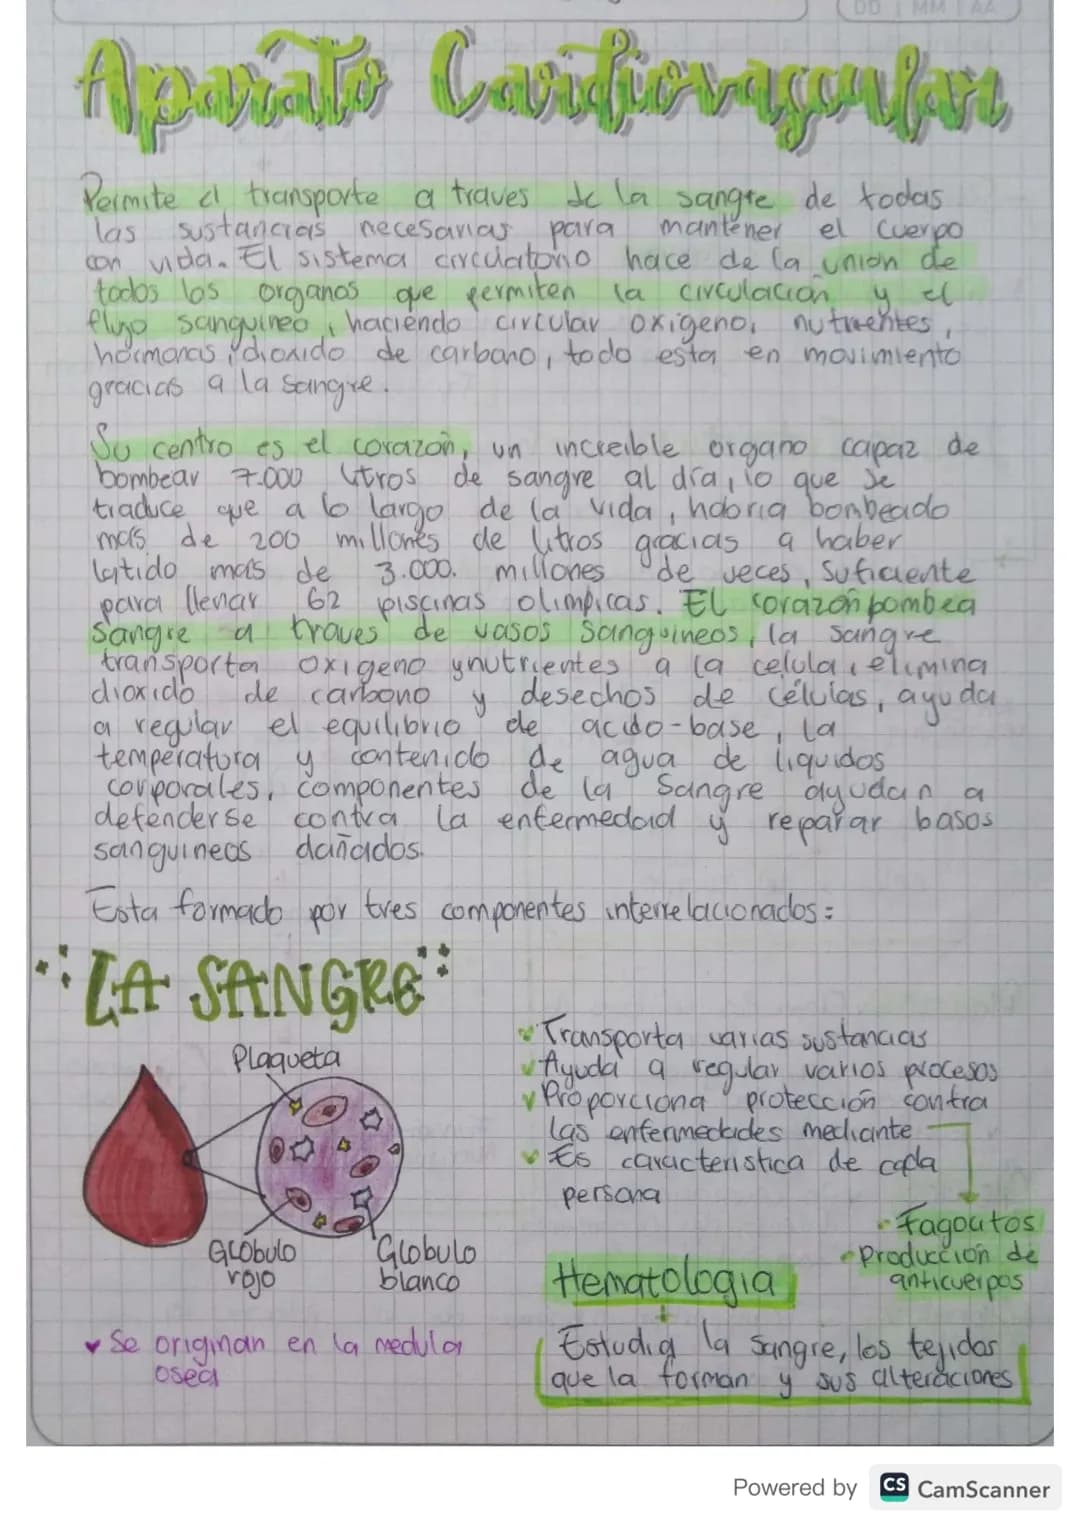 DD MM AA
Aparato Cardiovascular
Permite el transporte a traves de la sangre de todas
las sustancias necesarias para mantener el cuerpo
con vida. El sistema circulatorio hace de la union de
todos los organos que permiten la circulación y el
flujo sanguineo, haciendo circular oxigeno, nutrientes,
hormonas, dioxido de carbono, todo esta en movimiento
gracias a la sangre.
Su centro es el corazón, un increible organo capaz de
bombear 7.000 litros de sangre al día, lo que se
traduce que a lo largo de la vida, habria bombeado
más de 200 millones de litros gracias a haber
latido mas de 3.000. millones de veces, suficiente
para llenar 62 piscinas olimpicas. El corazón bombea
sangre a traves de vasos sanguineos, la sangre
transporta oxigeno y nutrientes a la celula, elimina
dioxido de carbono y desechos de células, ayuda
a regular el equilibrio de acido-base, la
temperatura y contenido de agua de liquidos
corporales, componentes de la sangre ayudan a
defenderse contra la enfermedad y reparar basos
sanguineos dañados.
Esta formado por tres componentes interrelacionados:
LA SANGRE
Plaqueta
Globulo
rojo
Globulo
blanco
Se originan en la medula
osea
Transporta varias sustancias
Ayuda a regular varios procesos
Proporciona protección contra
las enfermedades mediante
Es caracteristica de cada
persona
Fagocitos
Producción de
anticuerpos
Hematologia
Estudia la sangre, los tejidos
que la forman y sus alteraciones
Powered by CS CamScanner